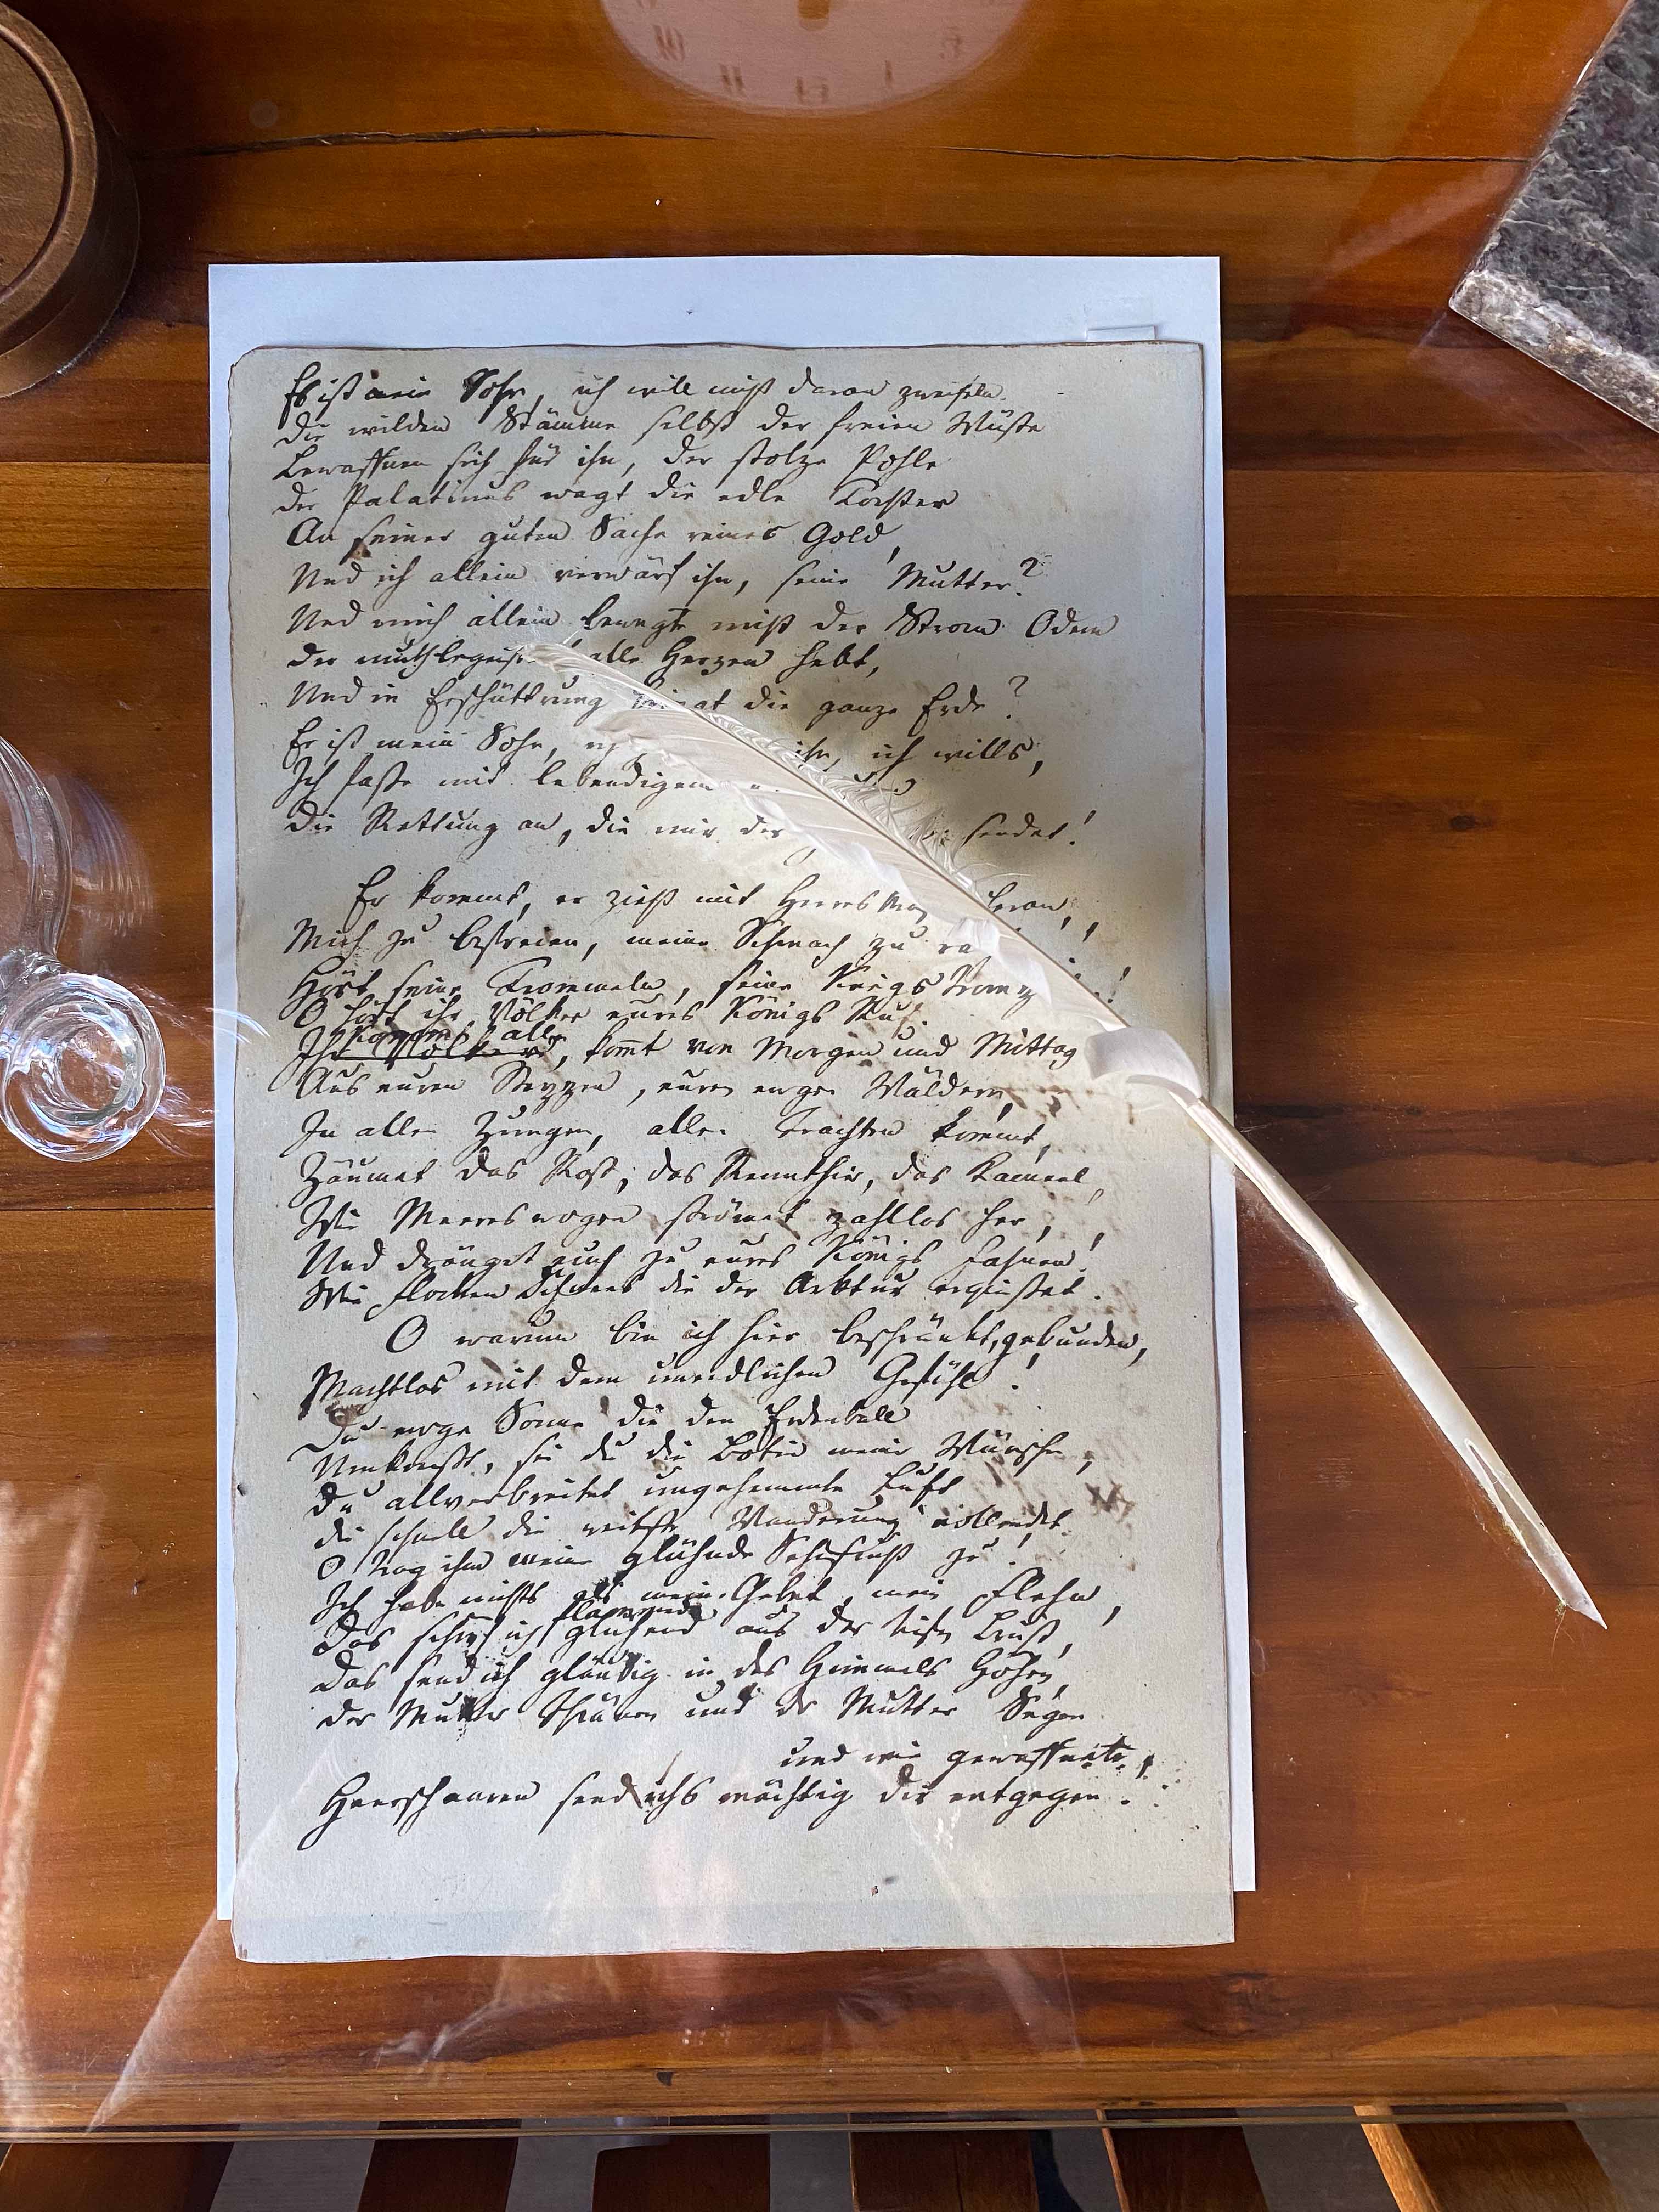 Es ist mein Sohn, ich will nicht daran zweifeln.
Die wilden Stämme selbst der freien Wüste
Bewaffnen sich für ihn, der stolze Pohle
Der Palatinus wagt die edle Tochter
An seiner guten Sache reines Gold,
Und ich allein verwärf ihn, seine Mutter?
Und mich allein bewegte nicht der Strom Odem
Der alle Herzen hebt,
Und in Erschüttrung bringt die ganze Erde?
Er ist mein Sohn, ihn, ich wills,
Ich fasse mit lebendigem
Die Rettung an, die mir der sendet!
Er kommt, er zieht mit heran!
Mich zu befreien, meine Schmach zu
Hört seine Trommeln, seine
O hört ihr Völker eures Königs Ruf!
Kommt alle
Ihr Völker, kommt von Morgen und Mittag
Aus euren Steppen, euren ewgen Wäldern,
In allen Zungen, allen Trachten kommt,
Zäumet das Roß, das Rennthier, das Kameel,
Wie Meereswogen strömet zahllos her,
Und dränget euch zu eures Königs Fahnen!
Wie Flocken Schnees die der Arktur ergießet.
O warum bin ich hier beschränkt, gebunden,
Machtlos mit dem unendlichen Gefühl!
Du ewge Sonne die den Erdenball
Umkreißt, sei du die Botin meiner Wünsche,
Du allverbreitet ungehemmte Luft
Die schnell die weitste Wanderung vollendet
O trag ihm meine glühnde Sehnsucht zu!
Ich habe nichts als mein Gebet, mein Flehn,
flammend
Das schöpf ich glühend aus der tiefen Brust,
Das send ich gläubig in des Himmels Höhen,
Der Mutter Thränen und der Mutter Segen
und wie gewaffnete
Heerschaaren send ichs mächtig dir entgegen!